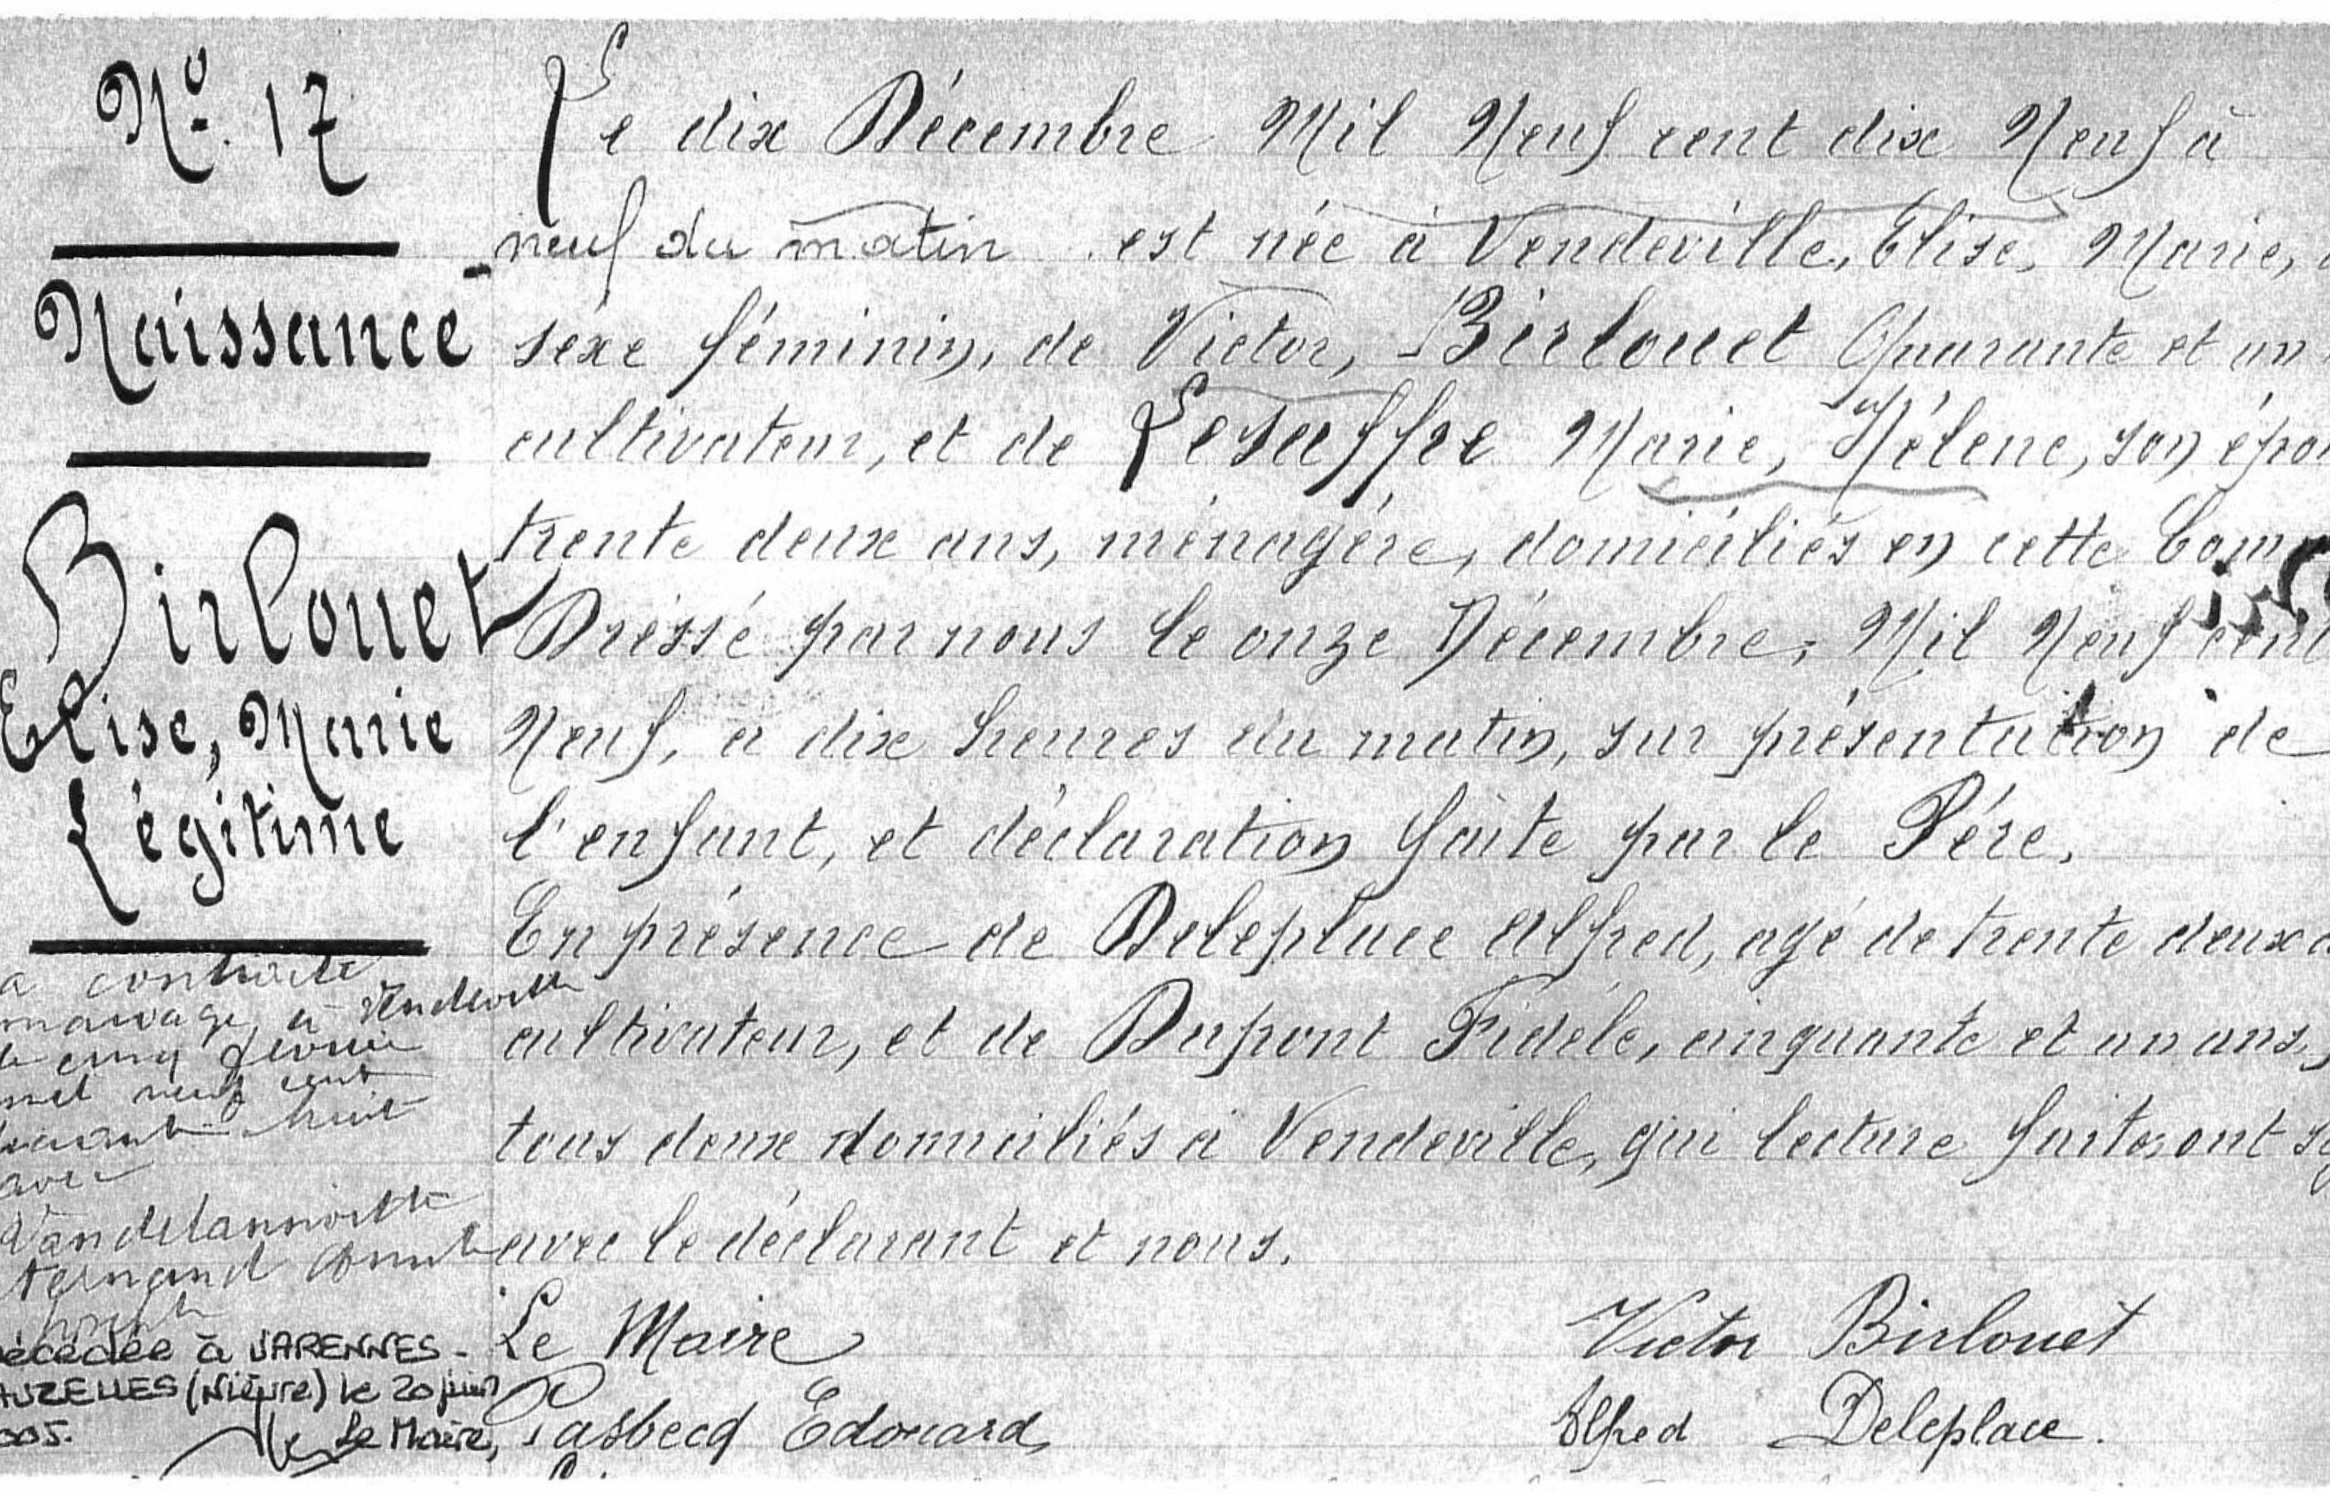 N° 17
Naissance
Birlouet
Elise, Marie
Légitime
a contracté
mariage, à Vendeville
le cinq février
mil neuf cent
quarante huit
avec
Vandelannoitte
Fernand
Joseph
écédée à VARENNES-
AUZELLES (Nièvre) le 20 juin
005.
Le Maire,
Le dix Décembre Mil Neuf cent dix Neuf à
neuf du matin est née à Vendeville, Elise, Marie,
sexe féminin, de Victor, Birlouet Quarante et un
cultivateur, et de Lesaffre Marie, Hélène, son épou
trente deux ans, ménagère, domiciliés en cette Com
Dressé par nous le onze Décembre, Mil Neuf cent
Neuf, a dix heures du matin, sur présentation de
l'enfant, et déclaration faite par le Père.
En présence de Deleplace Alfred, agé de trente deux a
cultivateur, et de Dupont Fidèle, cinquante et un ans,
tous deux domiciliés à Vendeville, qui lecture faite, ont sig
avec le déclarant et nous.
Le Maire
Pasbecq Edouard
Victor Birlouet
Alfred Deleplace.